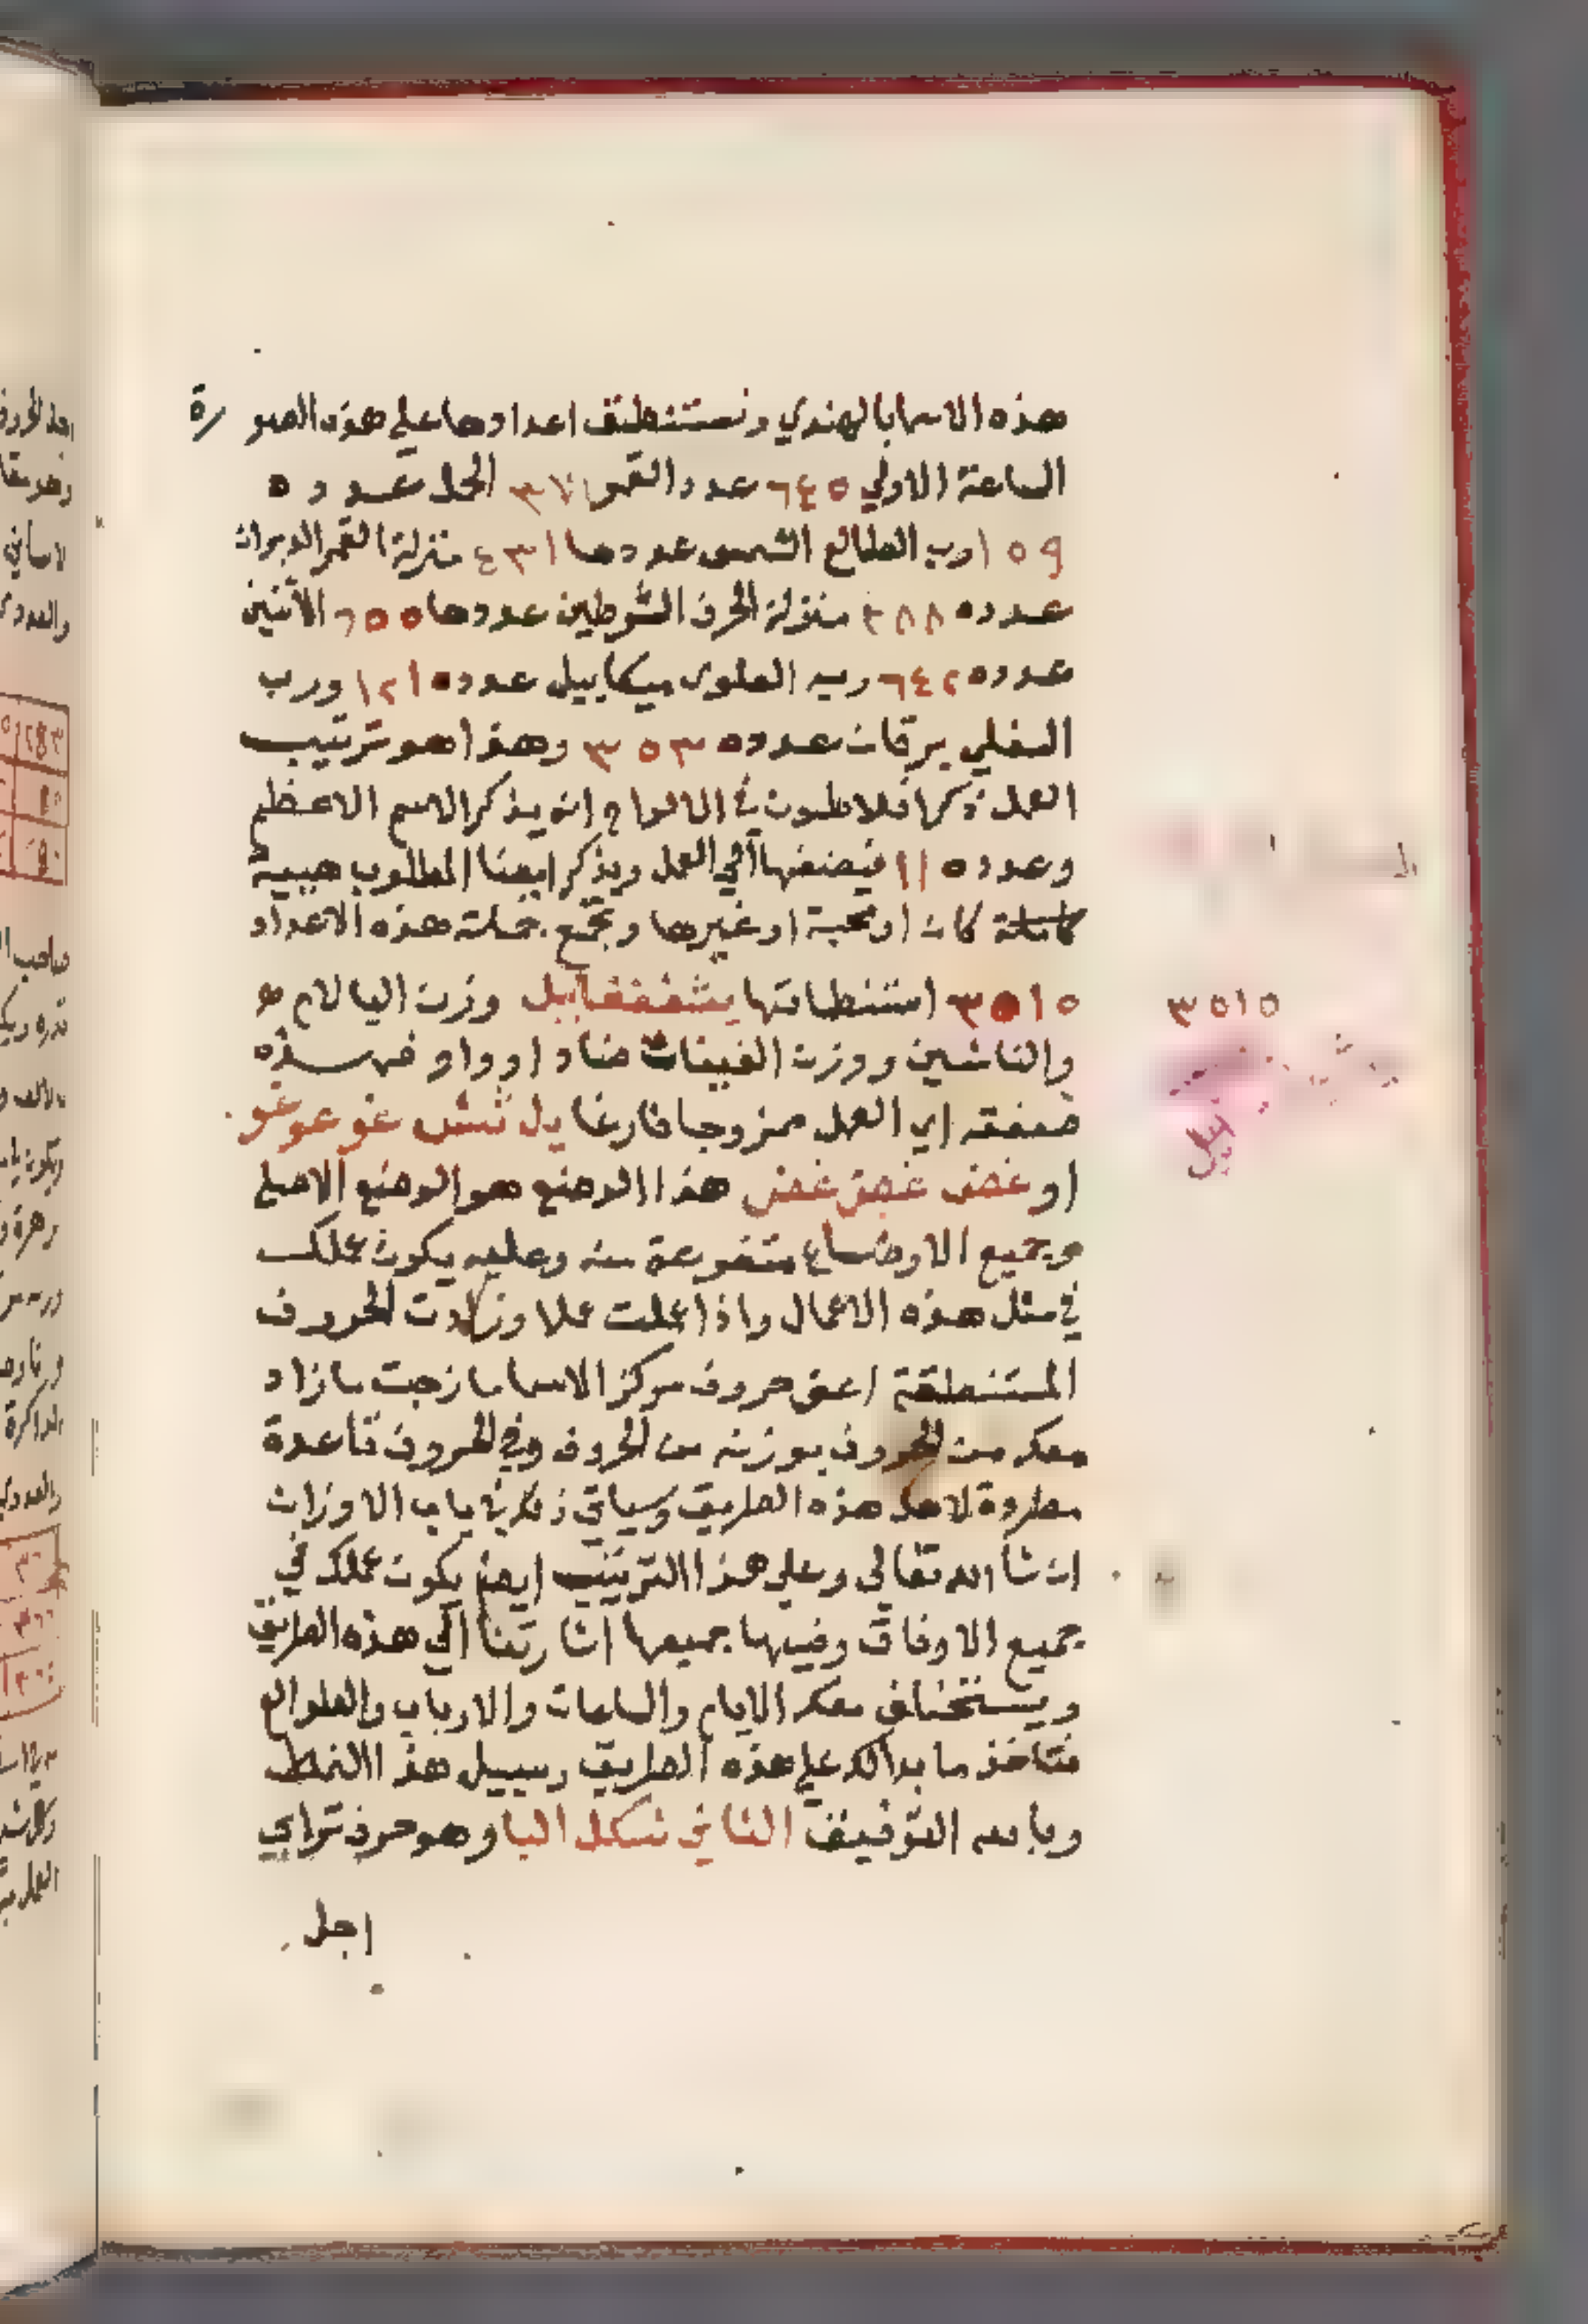 هذه الاسما بالهندي ونستنطق اعدادها علي هذه الصورة
الساعة الاولي ٦٤٥ عدد القمر ٣٧١ الحمل عدده
٥٩ ا ورب الطالع الشمس عددها ٤٣١ منزلة القمر الدبران
عدده ٢٨٨ منزلة الحرف الشرطين عددها ٦٥٥ الاثنين
عدده ٦٤٢ ربه العلوى ميكاييل عدده ١٢١ ورب
السفلي برقان عدده ٣٥٣ وهذا هو ترتيب
العمل ذكر افلاطون في الالواح انه يذكر الاسم الاعظم
وعدده ١١ فيضفها الي العمل ويذكر ايضا المطلوب هيبة
كاملة كان او محبة او غيرها وتجمع جملة هذه الاعداد
٣٥١٥ استنطاقتها وزن اليا لام ه
والثاشين ووزن الغينات ضاد او واو فهذه
صفته اي العمل ممزوجا فارغا يل ثش غو غو غو
او غض غض غض هذا الوضع هو الوضع الاصلي
وجميع الاوضاع متفرعة منه وعليه يكون عملك
في مثل هذه الاعمال واذا عملت عملا وزادت الحروف
المستنطقة اعنى حروف مركز الاسما مازجت ما زاد
معك من الحروف بوزنه من الحروف وفي الحروف قاعدة
مطردة لاهل هذه الطريق وسياتي ذكر في باب الاوزان
ان شا الله تعالي وعلي هذا الترتيب ايضا يكون عملك في
جميع الاوفاق وفيها جميعها اشارتنا الي هذه الطريق
ويستخلف معك الايام والساعات والارباب والطوالع
فتاخذ ما بدا لك علي هذه الطريق وسبيل هذا النمط
وبالله التوفيق الثاني شكل البا وهو حرف ترابي
اجل
٣٥١٥